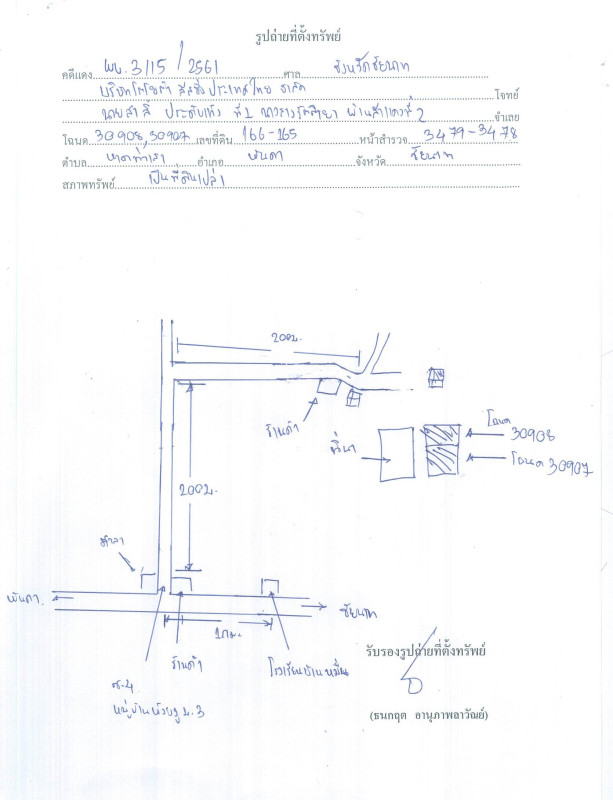 รูปถ่ายที่ตั้งทรัพย์
คดีแดง ผบ. 3115 / 2561 ศาล จังหวัดชัยนาท
บริษัทโตโยต้า ลีสซิ่งประเทศไทย จำกัด โจทย์
ที่ 1 ที่ 2 จำเลย
โฉนด 30908, 30907 เลขที่ดิน 166-165 หน้าสำรวจ 3479-3478
ตำบล หาดท่าเสา อำเภอ จังหวัด ชัยนาท
สภาพทรัพย์ เป็นที่ดินเปล่า
200ม.
ร้านค้า
ที่นา
โฉนด 30908
โฉนด 30907
200ม.
ศาลา
ชัยนาท
1กม.
ร้านค้า
โรงเรียนบ้าน
ซ.4
หมู่บ้าน ม.3
รับรองรูปถ่ายที่ตั้งทรัพย์
(ธนกฤต อานุภาพลาวัณย์)